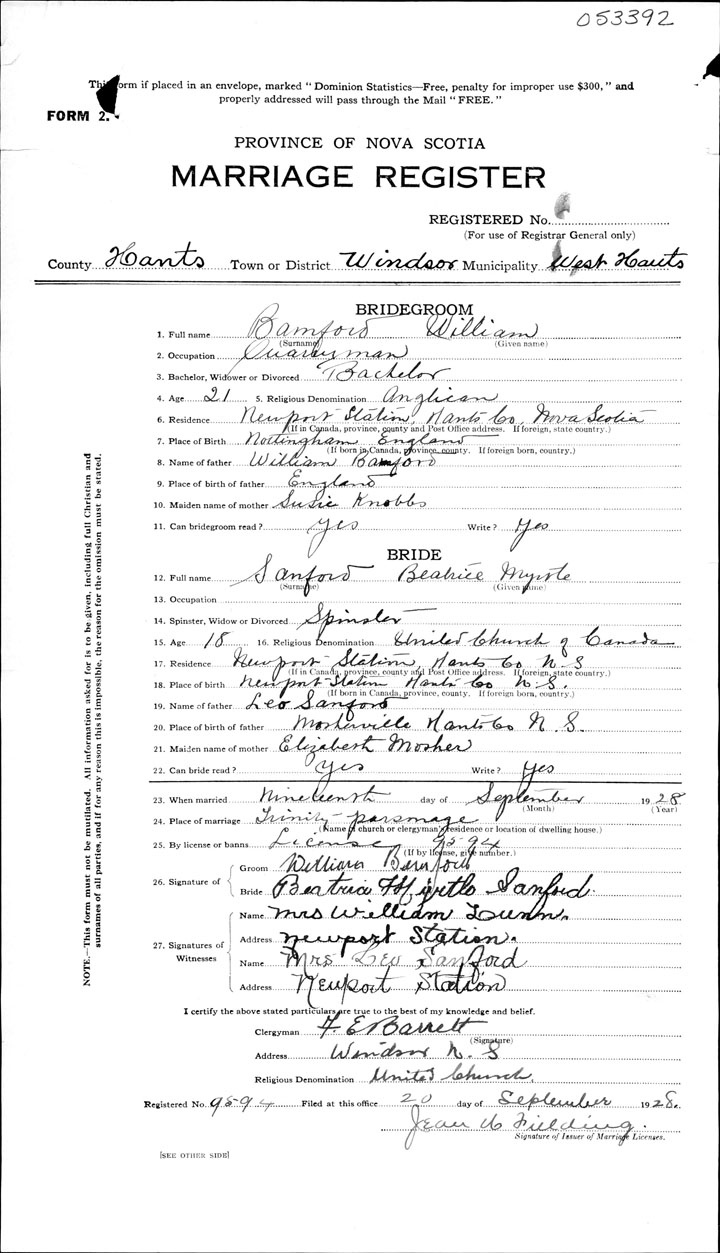 053392
This form if placed in an envelope, marked "Dominion Statistics—Free, penalty for improper use $300," and
properly addressed will pass through the Mail "FREE."
FORM 2.
PROVINCE OF NOVA SCOTIA
MARRIAGE REGISTER
REGISTERED No.
(For use of Registrar General only)
County Hants Town or District Windsor Municipality West Hants
BRIDEGROOM
1. Full name Bamford William
(Surname) (Given name)
2. Occupation Quarryman
3. Bachelor, Widower or Divorced Bachelor
4. Age 21 5. Religious Denomination Anglican
6. Residence Newport Station, Hants Co, Nova Scotia
(If in Canada, province, county and Post Office address. If foreign, state country.)
7. Place of Birth Nottingham England
(If born in Canada, province, county. If foreign born, country.)
8. Name of father William Bamford
9. Place of birth of father England
10. Maiden name of mother Susie Knobbs
11. Can bridegroom read? Yes Write? Yes
BRIDE
12. Full name Sanford Beatrice Myrtle
(Surname) (Given name)
13. Occupation
14. Spinster, Widow or Divorced Spinster
15. Age 18 16. Religious Denomination United Church of Canada
17. Residence Newport Station, Hants Co N.S
(If in Canada, province, county and Post Office address. If foreign, state country.)
18. Place of birth Newport Station Hants Co N.S.
(If born in Canada, province, county. If foreign born, country.)
19. Name of father Leo Sanford
20. Place of birth of father Mosherville Hants Co N.S.
21. Maiden name of mother Elizabeth Mosher
22. Can bride read? Yes Write? Yes
23. When married Nineteenth day of September 1928
(Month) (Year)
24. Place of marriage Trinity parsonage
(Name of church or clergyman's residence or location of dwelling house.)
25. By license or banns License 9594
(If by license, give number.)
26. Signature of Groom William Bamford
Bride Beatrice Myrtle Sanford.
27. Signatures of Witnesses Name Mrs William Lunn.
Address Newport Station.
Name Mrs Leo Sanford
Address Newport Station
I certify the above stated particulars are true to the best of my knowledge and belief.
Clergyman F. E. Barrett
(Signature)
Address Windsor N.S
Religious Denomination United Church
Registered No. 9594 Filed at this office 20 day of September 1928.
Jean Fielding.
Signature of Issuer of Marriage Licenses.
[SEE OTHER SIDE]
NOTE.—This form must not be mutilated. All information asked for is to be given, including full Christian and
surnames of all parties, and if for any reason this is impossible, the reason for the omission must be stated.